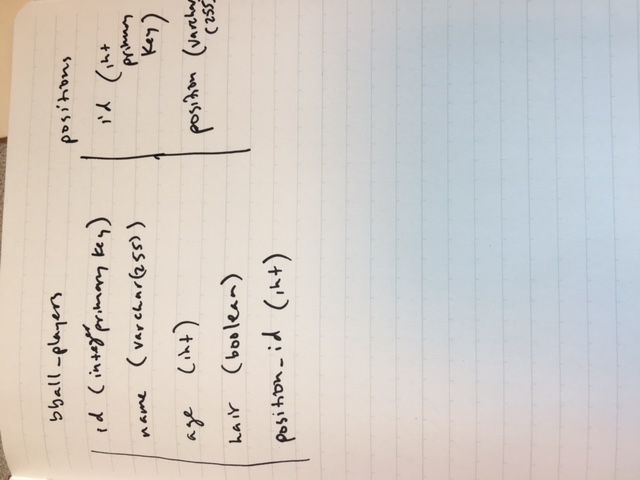 bball_players
id (integer primary key)
name (varchar(255))
age (int)
hair (boolean)
position_id (int)
positions
id (int
primary
key)
position (varchar
(255)